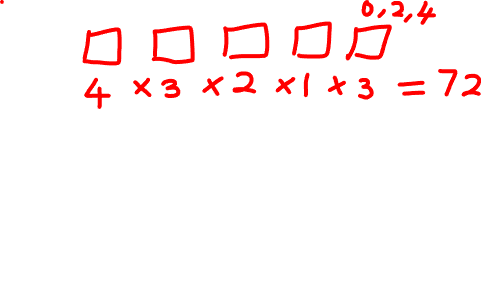 0,2,4
4 × 3 × 2 × 1 × 3 = 72